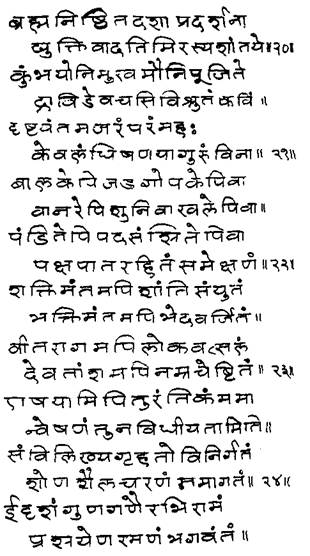 ब्रह्मनिष्ठितदशाप्रदर्शना
द्युक्तिवादतिमिरस्यशांतये॥२०॥
कुंभयोनिमुखमौनिपूजिते
द्राविडेवचसिविश्रुतंकविं॥
दृष्टवंतमजरंपरंमहः
केवलंधिषणयागुरुंविना॥ २१॥
बालकेपिजडगोपकेपिवा
वानरेपिशुनिवाखलेपिवा॥
पंडितेपिपदसंश्रितेपिवा
पक्षपातरहितंसमेक्षणं॥२२॥
शक्तिमंतमपिशांतिसंयुतं
भक्तिमंतमपिभेदवर्जितं॥
वीतरागमपिलोकवत्सलं
देवतांशमपिनम्रचेष्टितं॥२३॥
एषयामिपितुरंतिकंममा
न्वेषणंतुनविधीयतामिति॥
संविलिख्यगृहतोविनिर्गतं
शोणशैलचरणंसमागतं॥ २४॥
ईदृशंगुणगणैरभिरामं
प्रश्रयेणरमणंभगवंतं॥